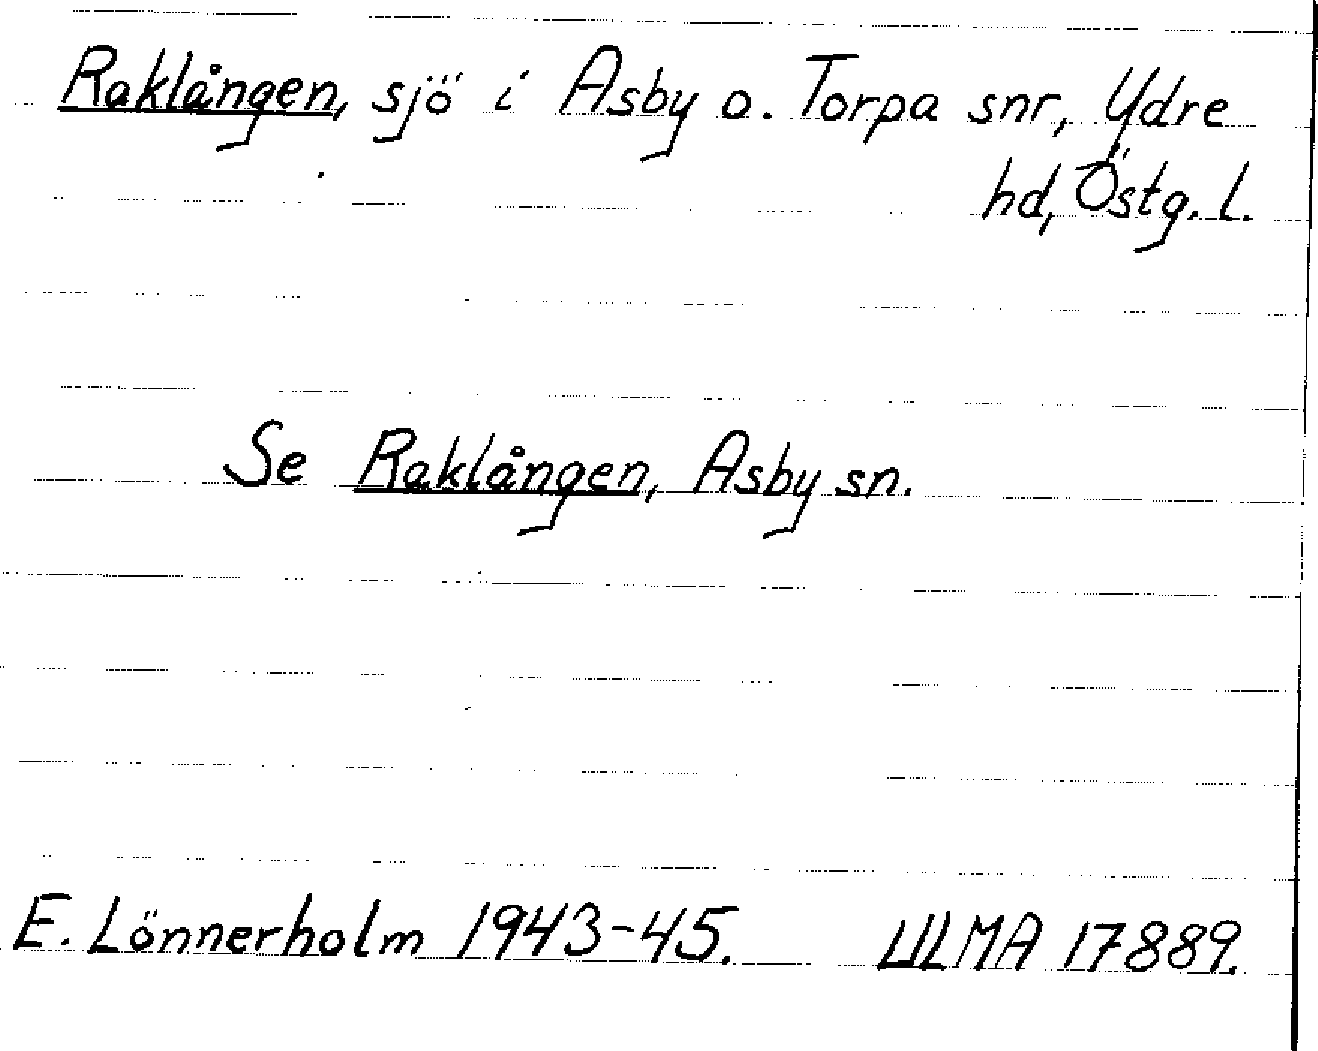 Raklången, sjö i Asby o. Torpa snr, Ydre
hd, Östg. l.
Se Raklången, Asby sn.
E. Lönnerholm 1943-45. ULMA 17889.